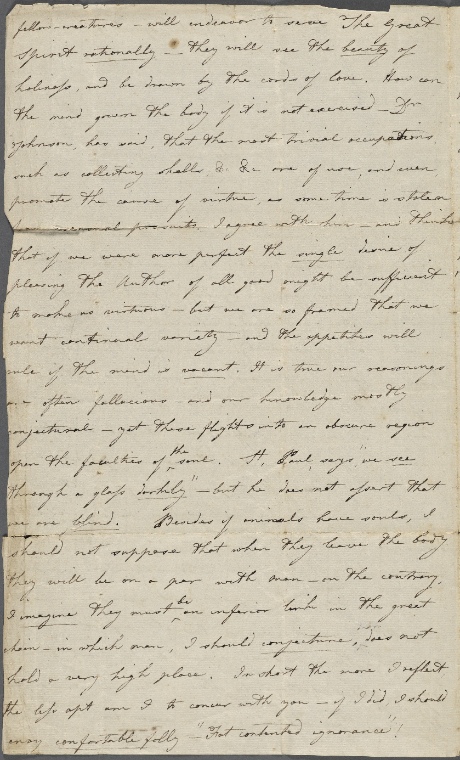 fellow-creatures - will endeavor to serve The Great
Spirit rationally - they will see the beauty of
holiness, and be drawn by the cords of love. How can
the mind govern the body if it is not exercised - Dr
Johnson, has said, that the most trivial occupations
such as collecting shells, & &c are of use, and even
promote the cause of virtue, as some time is stolen
from sensual pursuits. I agree with him - and think
that if we were more perfect the single desire of
pleasing the Author of all good might be sufficient
to make us virtuous - but we are so framed that we
want continual variety - and the appetites will
rule if the mind is vacant. It is true our reasonings
are often fallacious - and our knowledge mostly
conjectural - yet these flights into an obscure region
open the faculties of the soul. St. Paul says "we see
through a glass darkly" - but he does not assert that
we are blind. Besides if animals have souls, I
should not suppose that when they leave the body
they will be on a par with man - on the contrary,
I imagine they must be an inferior link in the great
chain - in which man, I should conjecture, does not
hold a very high place. In short the more I reflect
the less apt am I to concur with you - if I did, I should
envy comfortable folly - "Fat contented ignorance"!